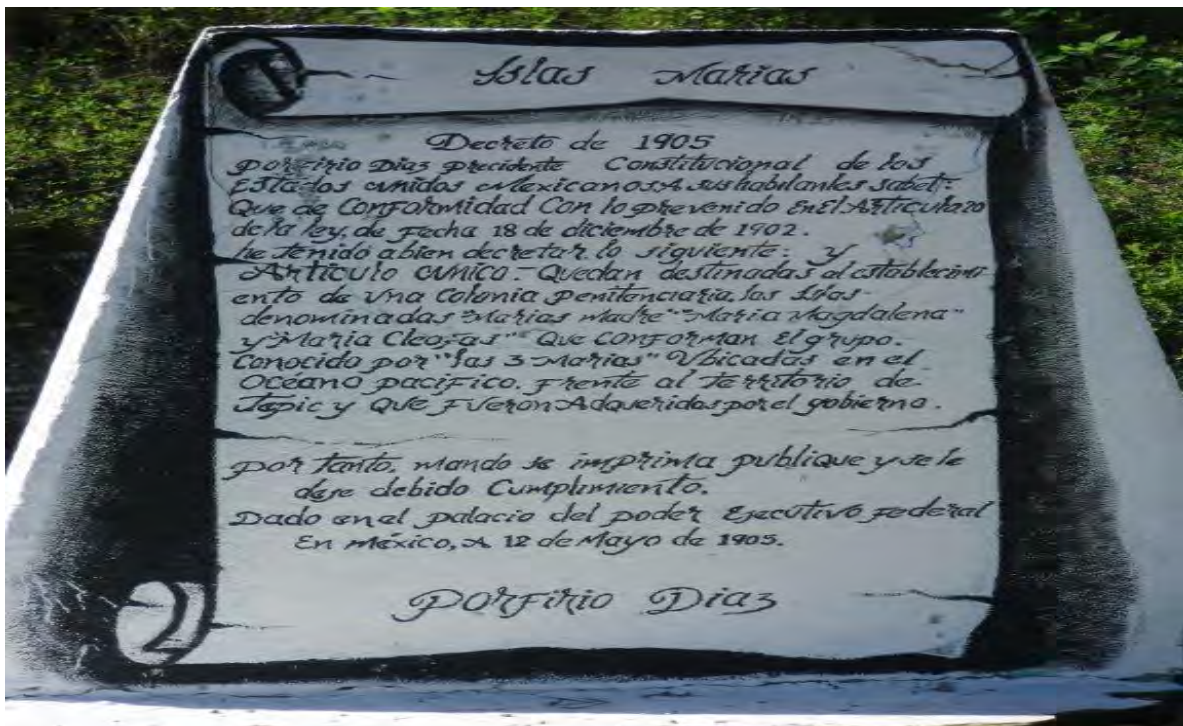 Islas Marias
Decreto de 1905
Porfirio Diaz Precidente Constitucional de los
Estados unidos Mexicanos A sus habitantes sabet:
Que de Conformidad Con lo prevenido En El Articulo 20
de la ley, de Fecha 18 de diciembre de 1902.
he tenido abien decretar lo siguiente: y
Articulo unico - Quedan destinadas al establecimi
ento de una Colonia penitenciaria, las Islas -
denominadas "Marias Madre" "Maria Magdalena"
y "Maria Cleofas" Que conforman El grupo.
Conocido por "las 3 Marias" Ubicadas en el
Oceano pacifico. Frente al territorio de -
Tepic y Que Fueron Adqueridas por el gobierno.
Por tanto, mando se imprima publique y se le
dese debido Cumplimiento.
Dado en el palacio del poder Ejecutivo Federal
En México, A 12 de Mayo de 1905.
Porfirio Diaz